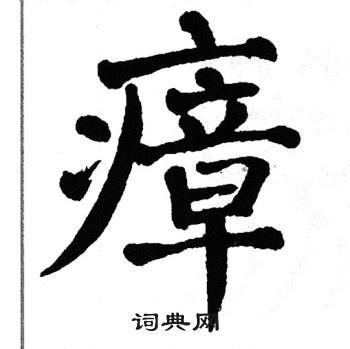 瘴
词典网